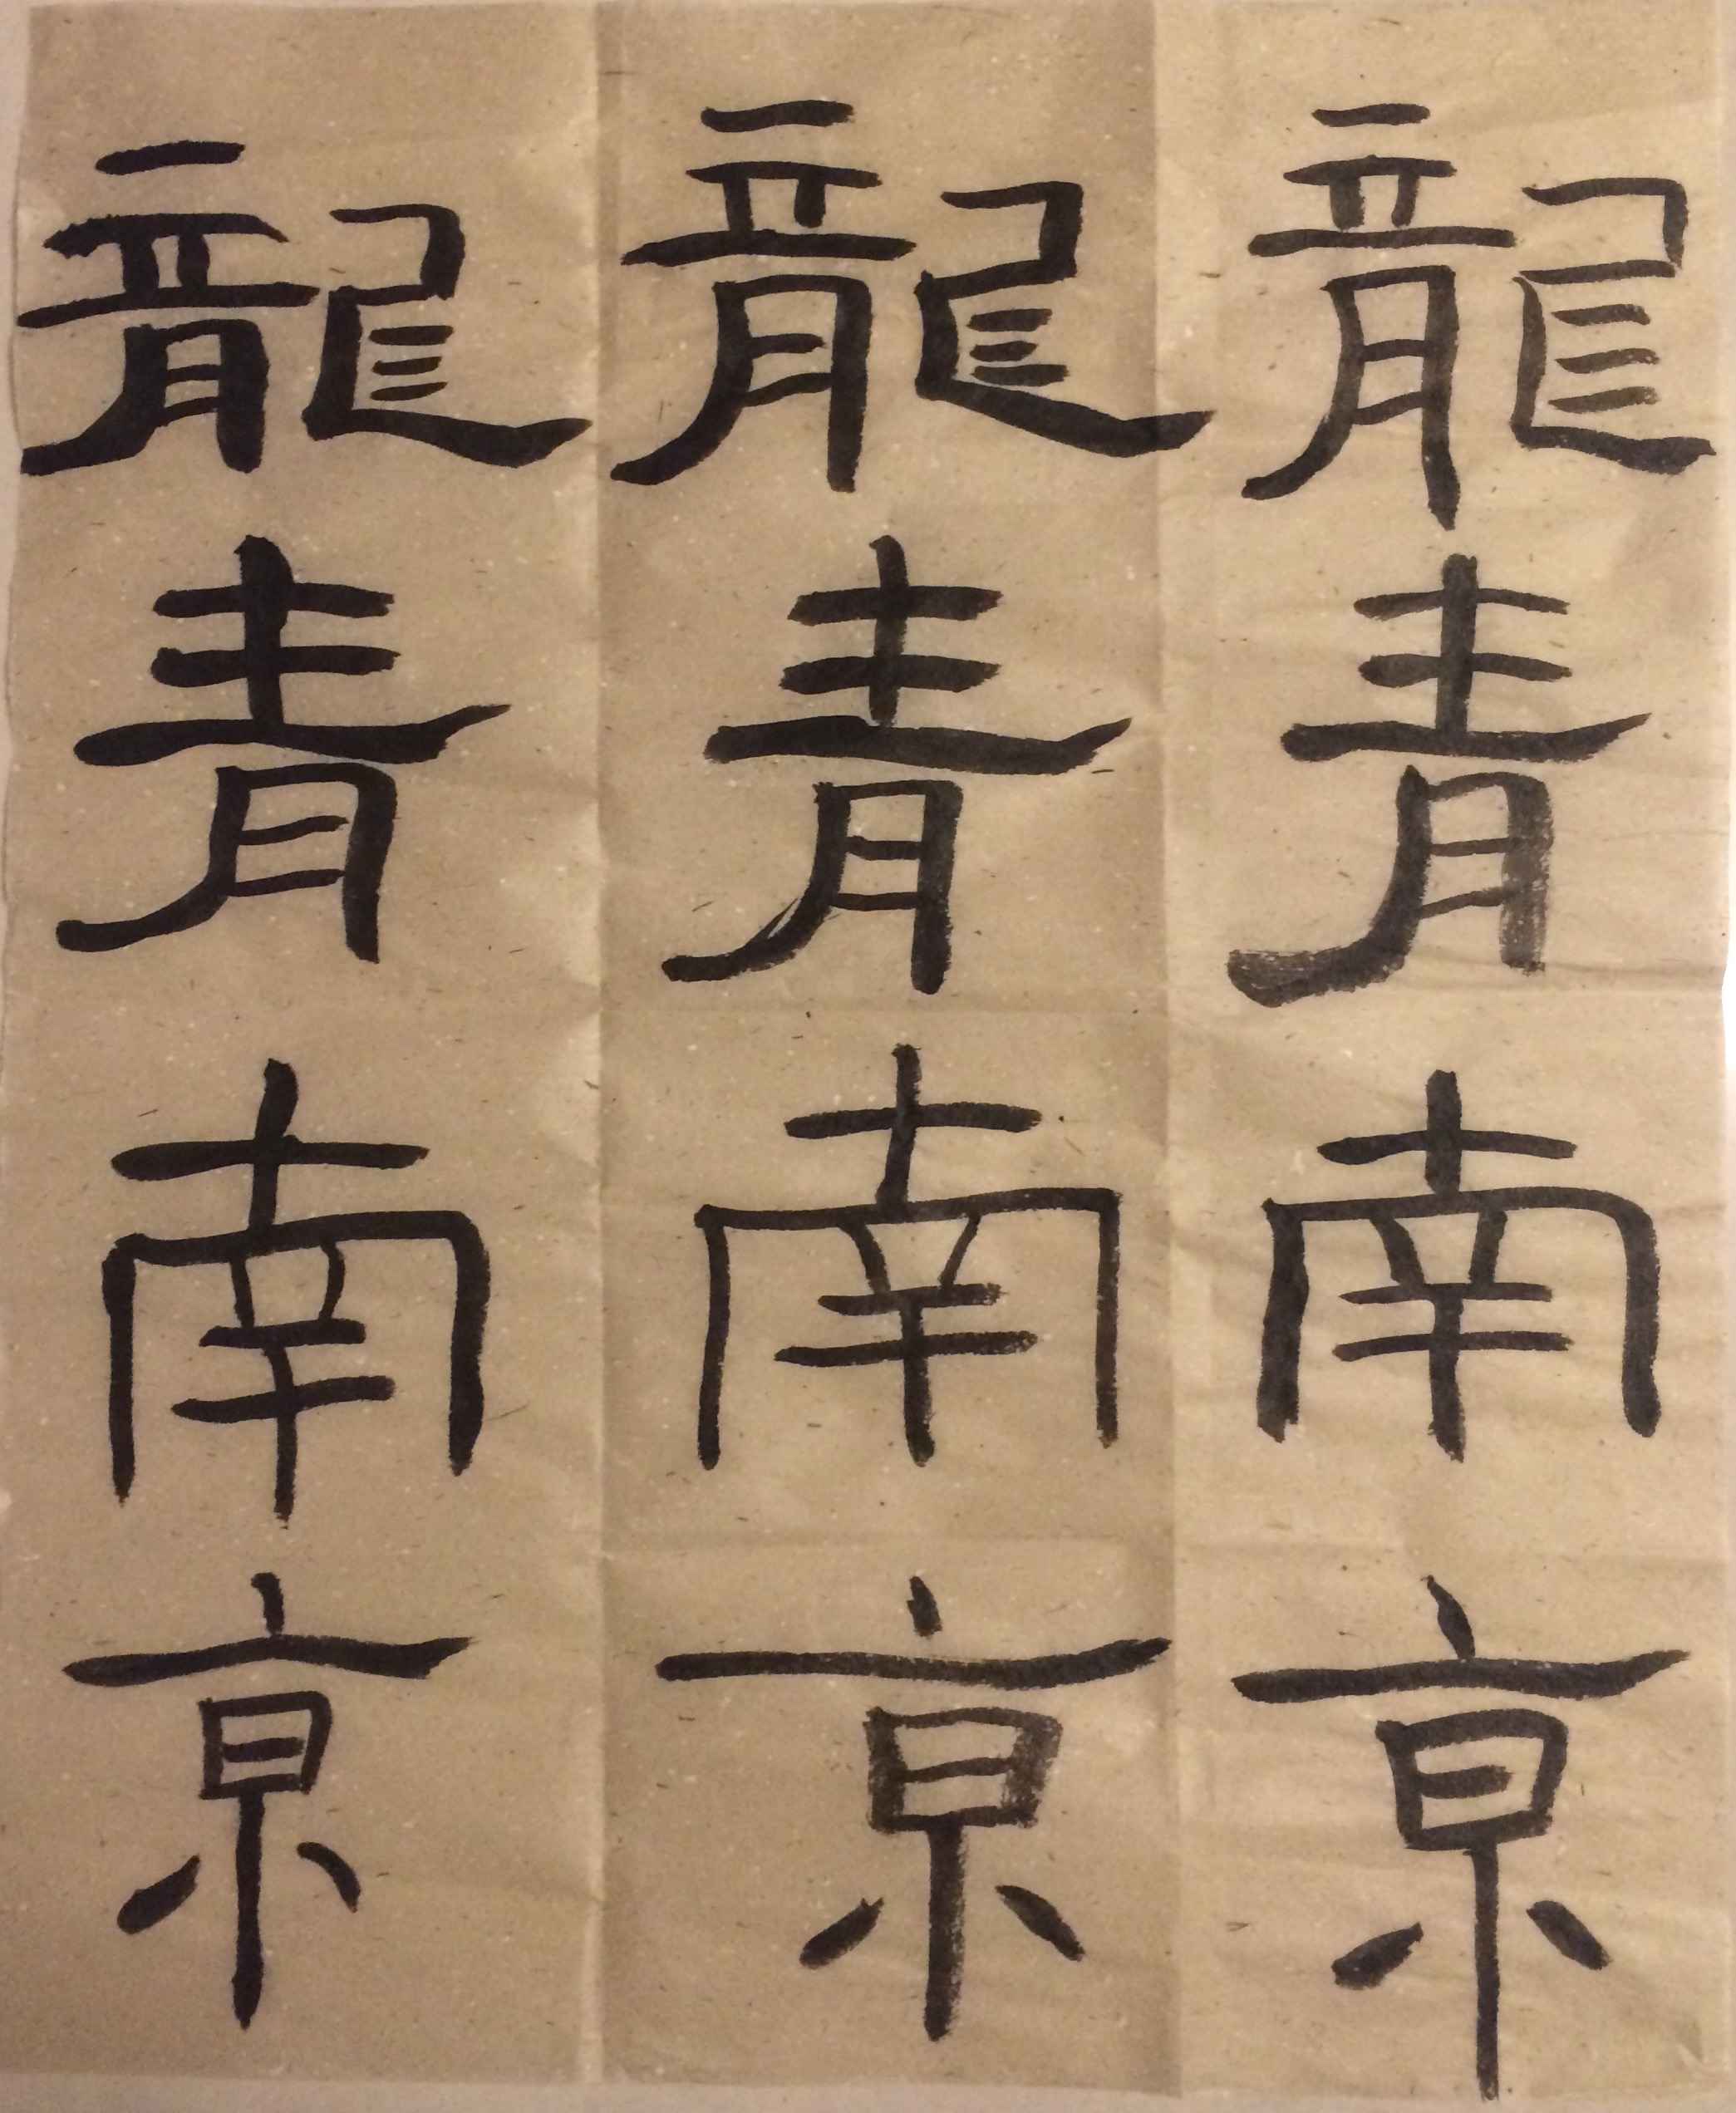 龍青南京
龍青南京
龍青南京